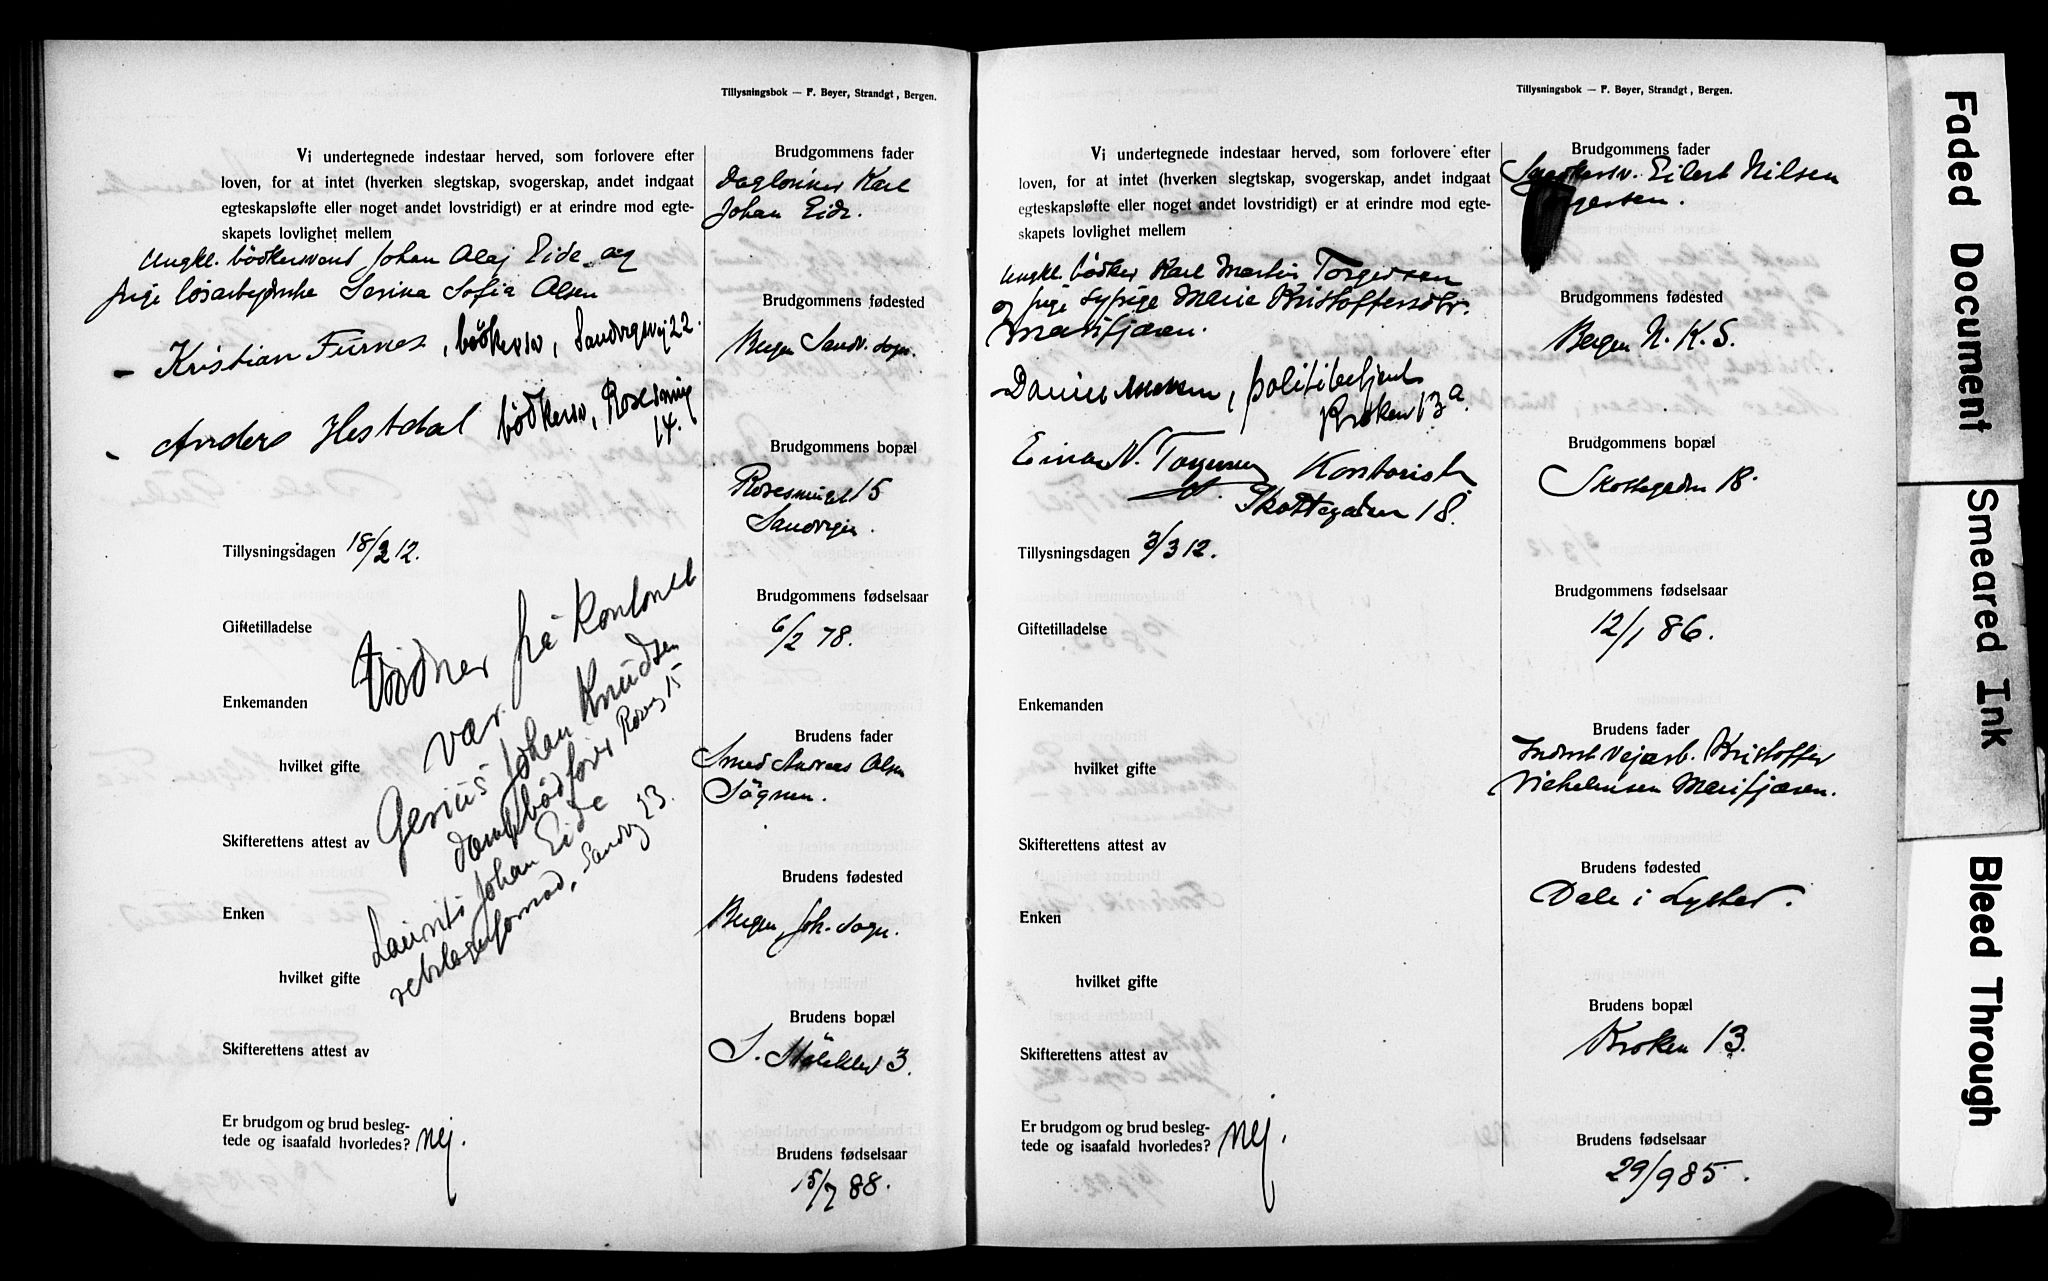 Tillysningsbok — F. Beyer, Strandgt, Bergen.
Vi undertegnede indestaar herved, som forlovere efter
loven, for at intet (hverken slegtskap, svogerskap, andet indgaat
egteskapsløfte eller noget andet lovstridigt) er at erindre mod egte-
skapets lovlighet mellem
Ungkl. bödkersvend Johan Olaj Eide og
pige lösarbejderske Serina Sofia Olsen
- Kristian Furnes, bödkersv, Sandvigsvej 22.
- Anders Hestdal bödkersv,
14.
Tillysningsdagen 18/2 12.
Giftetilladelse
Enkemanden
hvilket gifte
Skifterettens attest av
Enken
hvilket gifte
Skifterettens attest av
Er brudgom og brud besleg-
tede og isaafald hvorledes? nej.
Vidner på Kontoret
var
Gerius Johan Knudsen
15
Laurits Johan Eide
Sandvg 23.
Brudgommens fader
Daglönner Karl
Johan Eide.
Brudgommens fødested
Bergen Sandv. sogn.
Brudgommens bopæl
Rosesmuget 15
Sandvigen.
Brudgommens fødselsaar
6/2 78.
Brudens fader
Smed Andreas Olsen
Sögnen.
Brudens fødested
Bergen, Joh. sogn.
Brudens bopæl
S. 3.
Brudens fødselsaar
15/7 88.
Tillysningsbok — F. Beyer, Strandgt, Bergen.
Vi undertegnede indestaar herved, som forlovere efter
loven, for at intet (hverken slegtskap, svogerskap, andet indgaat
egteskapsløfte eller noget andet lovstridigt) er at erindre mod egte-
skapets lovlighet mellem
Ungkl. bödker Karl Martin Torgersen
og pige Syprige Marie Kristoffersdtr.
Marifjæren.
Daniel, politibetjent
Kroken 13a.
Einar N. Torgersen Kontorist
Skottegaden 18.
Tillysningsdagen 3/3 12.
Giftetilladelse
Enkemanden
hvilket gifte
Skifterettens attest av
Enken
hvilket gifte
Skifterettens attest av
Er brudgom og brud besleg-
tede og isaafald hvorledes? nej.
Brudgommens fader
Eilert Nilsen
Brudgommens fødested
Bergen N. K. S.
Brudgommens bopæl
Skottegaden 18.
Brudgommens fødselsaar
12/1 86.
Brudens fader
Indrst Vejarb. Kristoffer
Marifjæren.
Brudens fødested
Dale i Lyster.
Brudens bopæl
Kroken 13.
Brudens fødselsaar
29/9 85.
Faded Document
Smeared Ink
Bleed Through